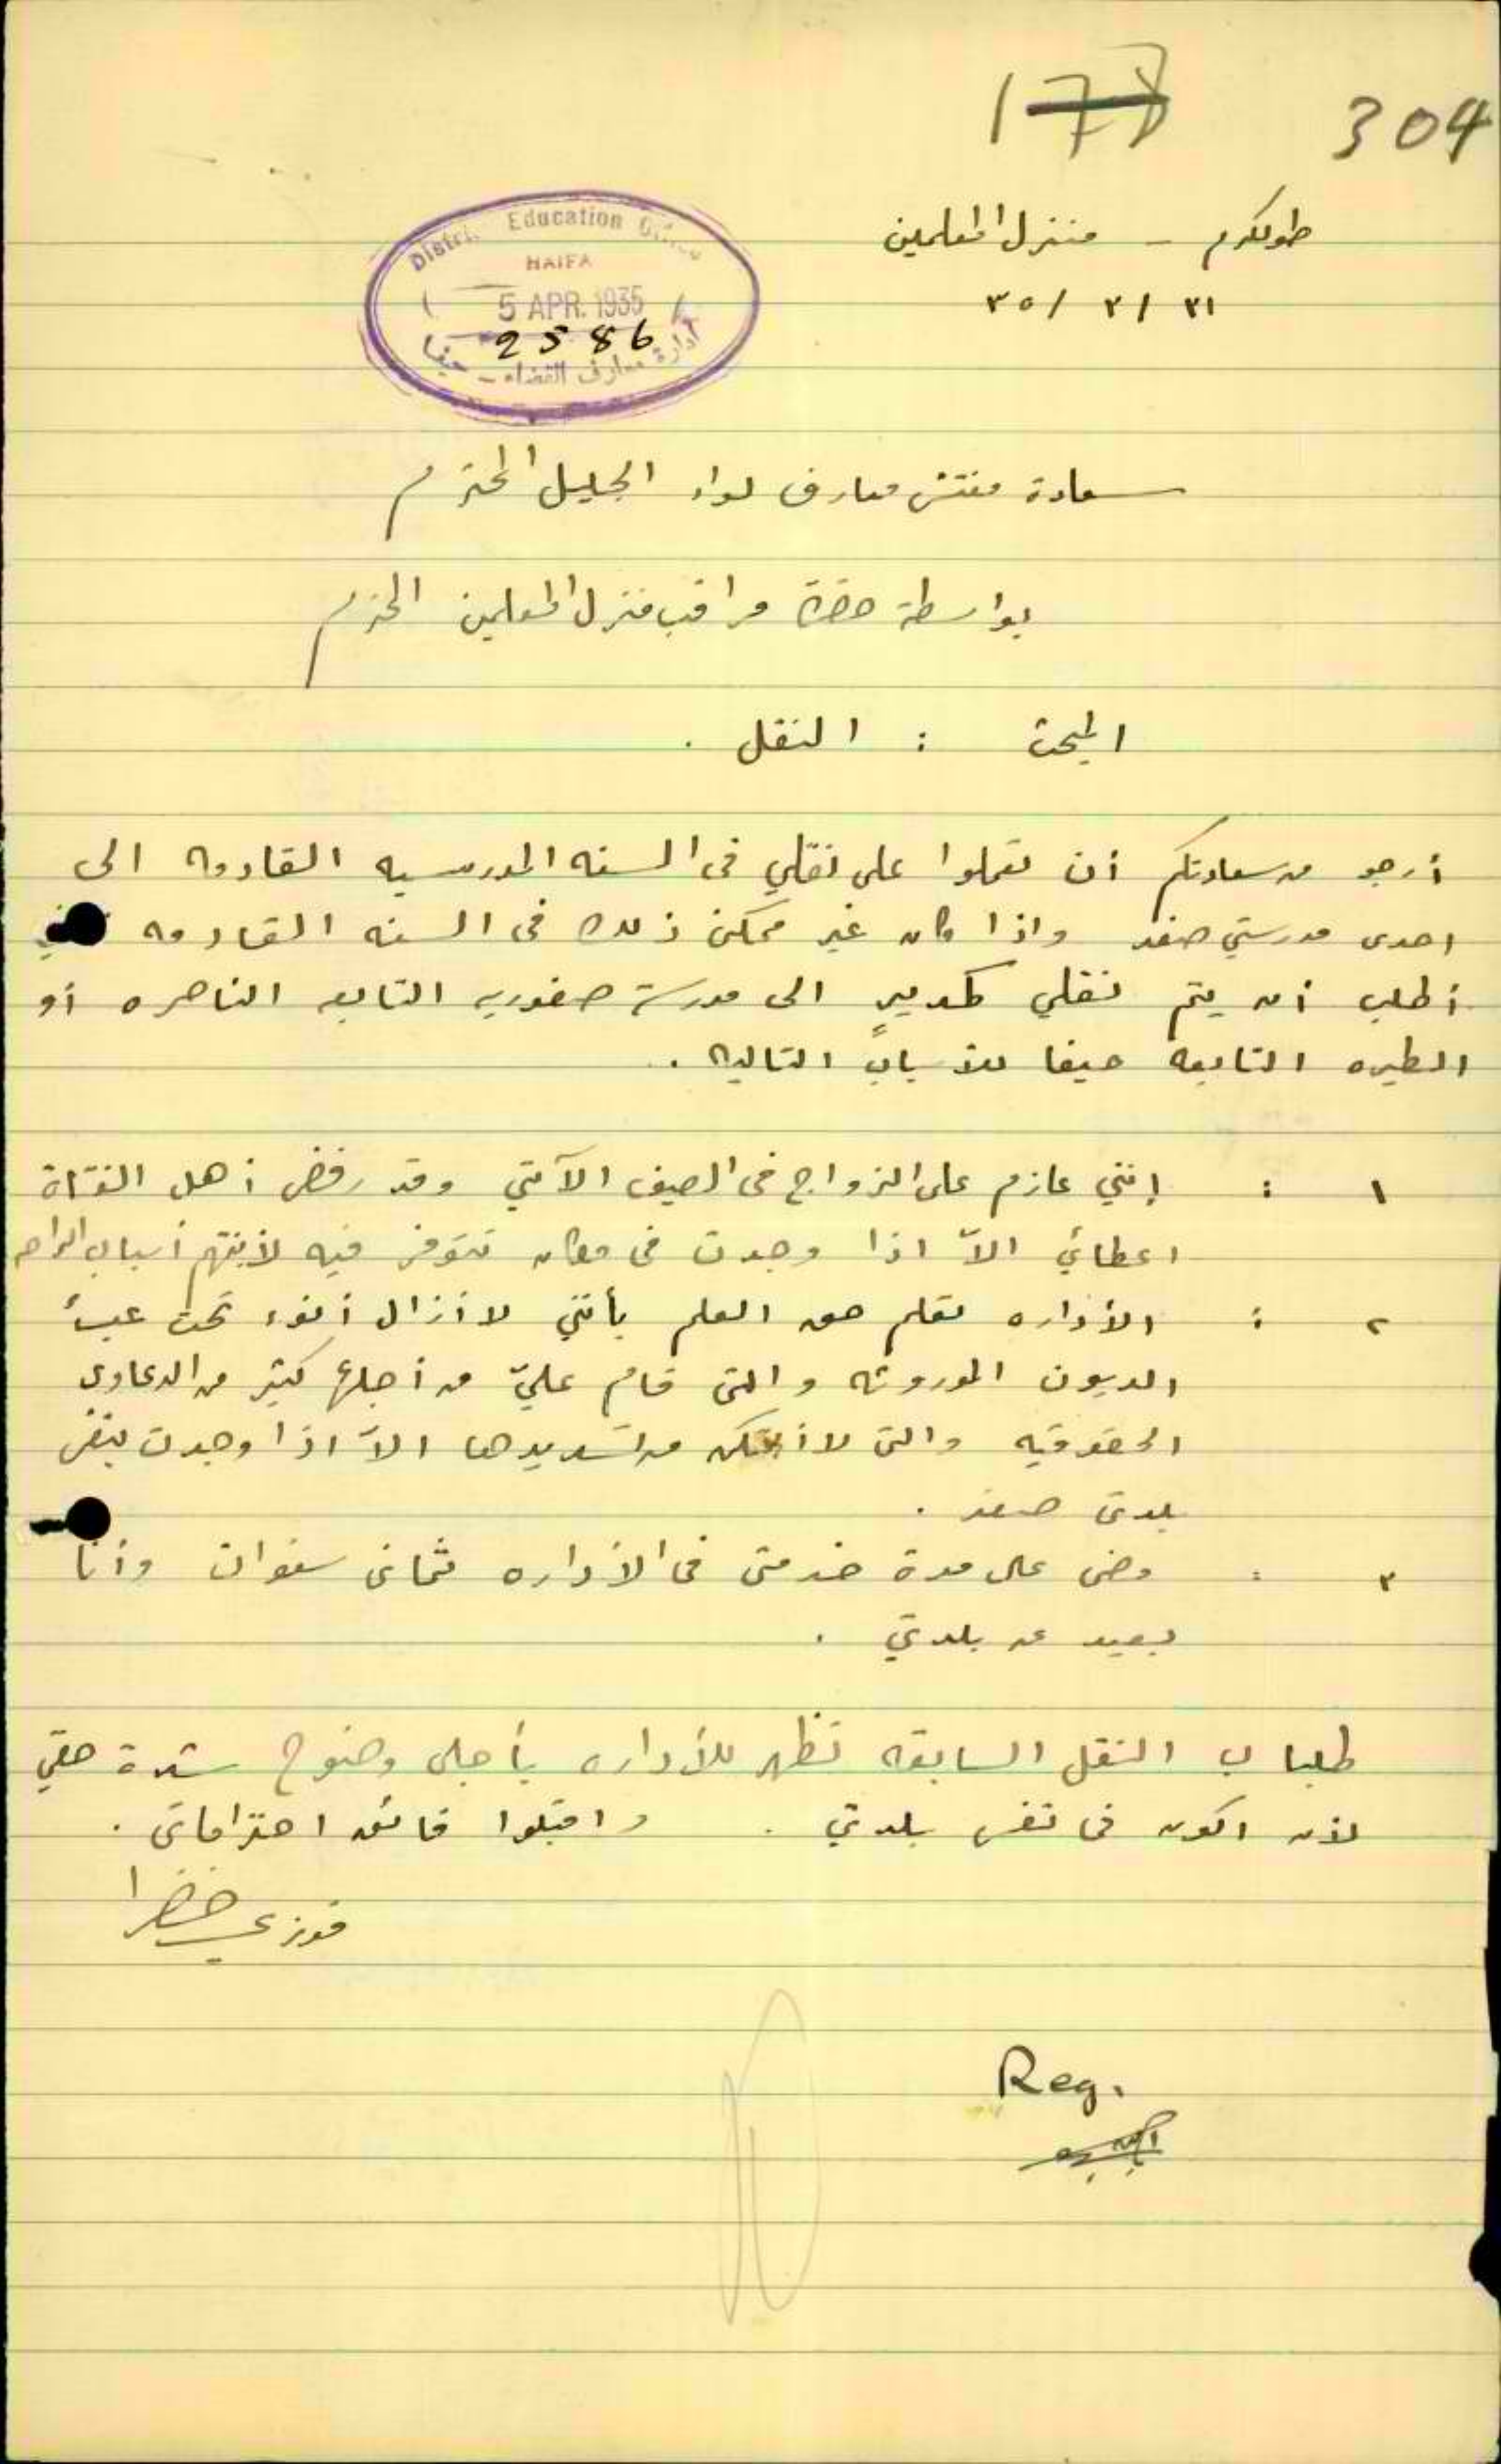 177 304
طولكرم - منزل المعلمين
٣١ / ٣ / ٣٥
District Education Office
HAIFA
5 APR. 1935
2586
ادارة معارف القضاء - حيفا
سعادة مفتش معارف لواء الجليل المحترم
بواسطة حضرة مراقب منزل المعلمين المحترم
المبحث : النقل .
أرجو من سعادتكم أن تعملوا على نقلي في السنه المدرسيه القادمه الى
احدى مدرستي صفد واذا كان غير ممكن ذلك في السنه القادمه
أطلب أن يتم نقلي كمديرٍ الى مدرسة صفوريه التابعه الناصره أو
الطيره التابعه حيفا للأسباب التاليه .
١ : إنني عازم على الزواج في الصيف الآتي وقد رفض أهل الفتاة
اعطائي الاّ اذا وجدت في مكان تتوفر فيه لأبنتهم أسباب الراحه
٢ : الأداره تعلم حق العلم بأنني لا أزال أنوء تحت عبء
الديون الموروثه والتي قام عليّ من أجلها كثير من الدعاوى
الحقوقيه والتي لا أتمكن من تسديدها الاّ اذا وجدت بنفس
بلدتي صفد .
٣ : مضى على مدة خدمتي في الأداره ثماني سنوات وأنا
بعيد عن بلدتي .
طلبات النقل السابقه تظهر للأداره بأجلى وضوح شدة حقي
لأن اكون في نفس بلدتي . واقبلوا فائق احتراماتي .
فوزي خضرا
Reg.